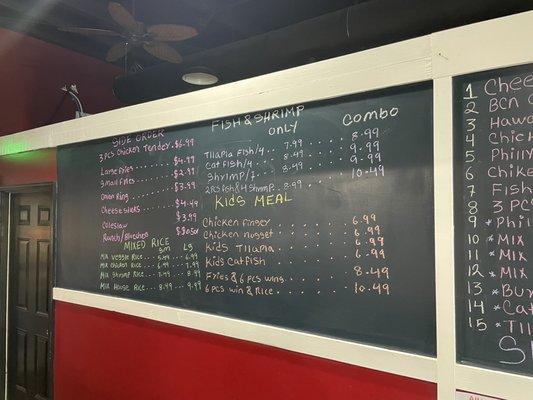 SIDE ORDER
3 pcs Chicken Tender. $6.99
Large Fries . . . . $4.99
Small Fries . . . . $2.99
Onion Ring . . . . $3.99
Cheesesticks . . . $4.49
Coleslaw . . . . $3.99
Ranch/Bluechesse $0.50
MIXED RICE
SM LG
Mix Veggie Rice . . . 5.49 . . 6.99
Mix Chicken Rice . . . 6.99 . . 7.99
Mix Shrimp Rice . . . 7.99 . . 8.99
Mix House Rice . . 8.49 . . . 9.99
FISH & SHRIMP
ONLY
COMBO
Tilapia Fish/4 . . 7.99 . . . 8.99
Cat Fish/4 . . . 8.49 . . . 9.99
Shrimp/7 . . . 8.49 . . . 9.99
2 pcs Fish & 4 Shrimp . . 8.99 . . . 10.49
KIDS MEAL
Chicken Finger . . . . . . 6.99
Chicken Nugget . . . . . . 6.99
Kids Tilapia . . . . . . 6.99
Kids Catfish . . . . . . 6.99
Fries & 6 pcs wing . . . . . 8.49
6 pcs win & Rice . . . . . . 10.49
1 Chees
2 Bcn
3 Hawa
4 Chick
5 Philly
6 Chike
7 Fish
8 3 PC
9 * Phil
10 * Mix
11 * Mix
12 * Mix
13 * Bu
14 * Cat
15 * Tila